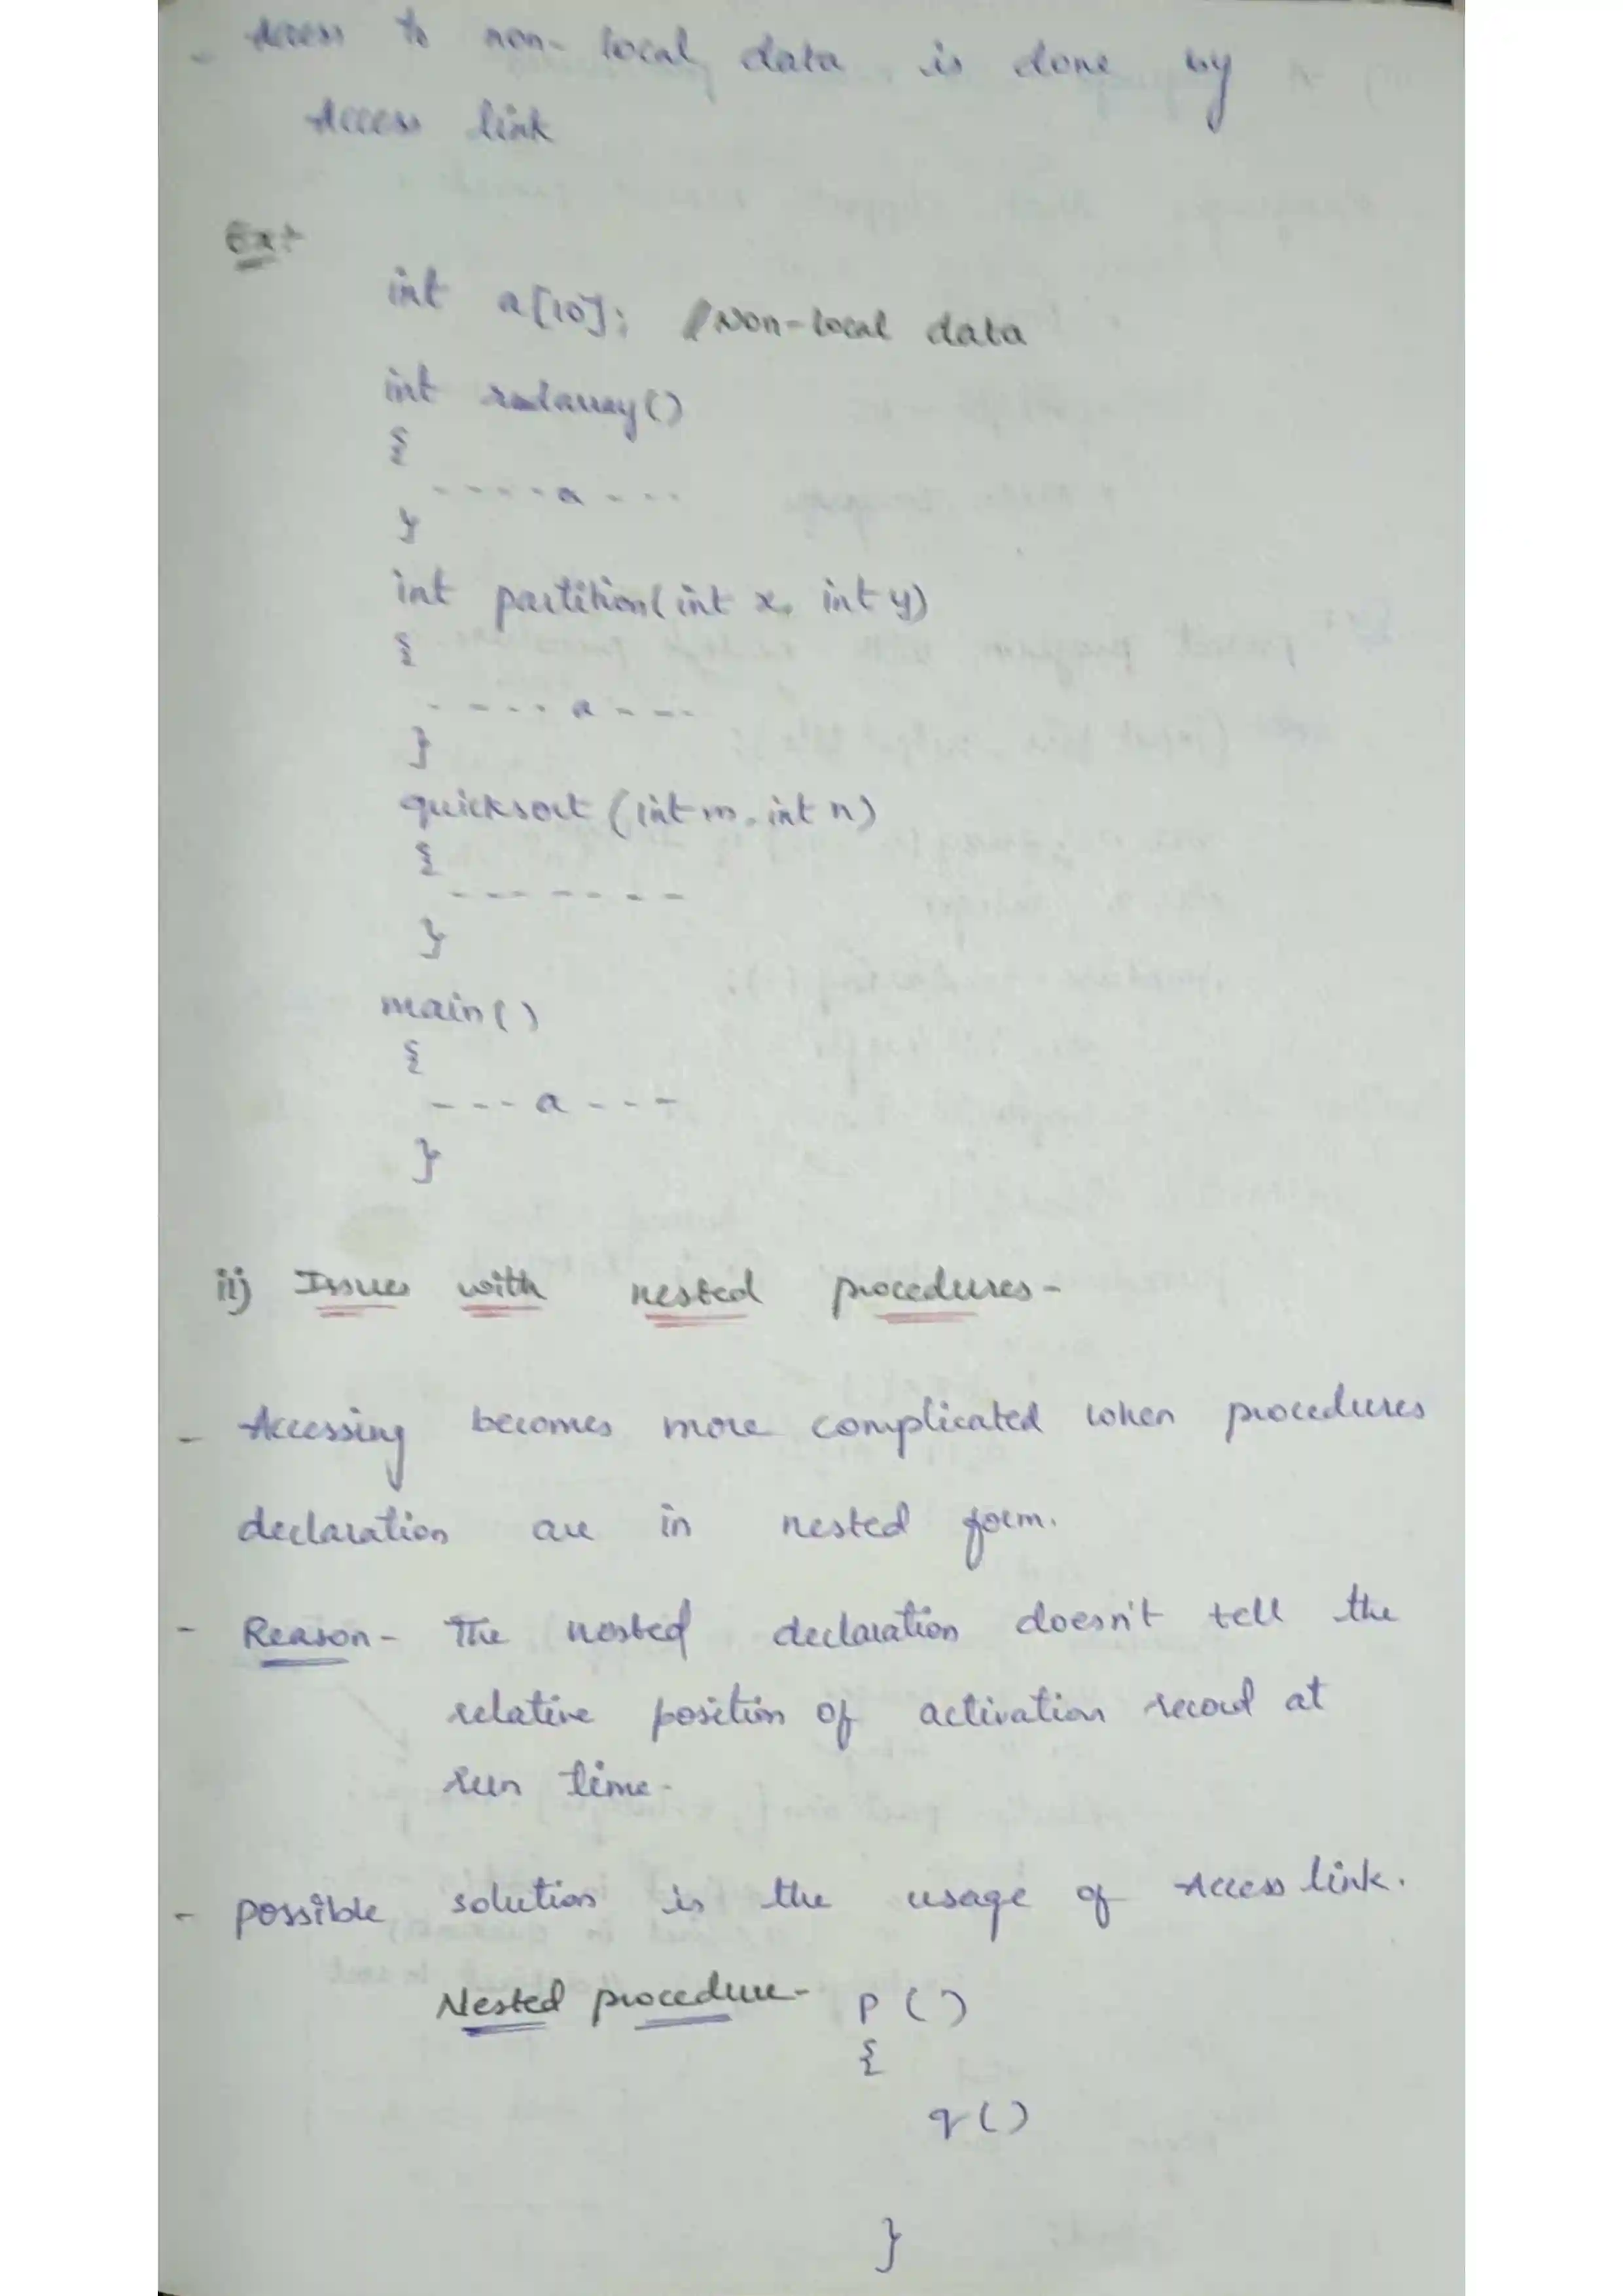 - Access to non-local data is done by
Access link
Ex:
int a[10]; Non-local data
int readarray()
{
----a---
}
int partition(int x, int y)
{
----a---
}
quicksort (int m, int n)
{
-------
}
main()
{
---a---
}
ii) Issues with nested procedures-
- Accessing becomes more complicated when procedures
declaration are in nested form.
- Reason- The nested declaration doesn't tell the
relative position of activation record at
run time.
- possible solution is the usage of Access link.
Nested procedure- P()
{
q()
}